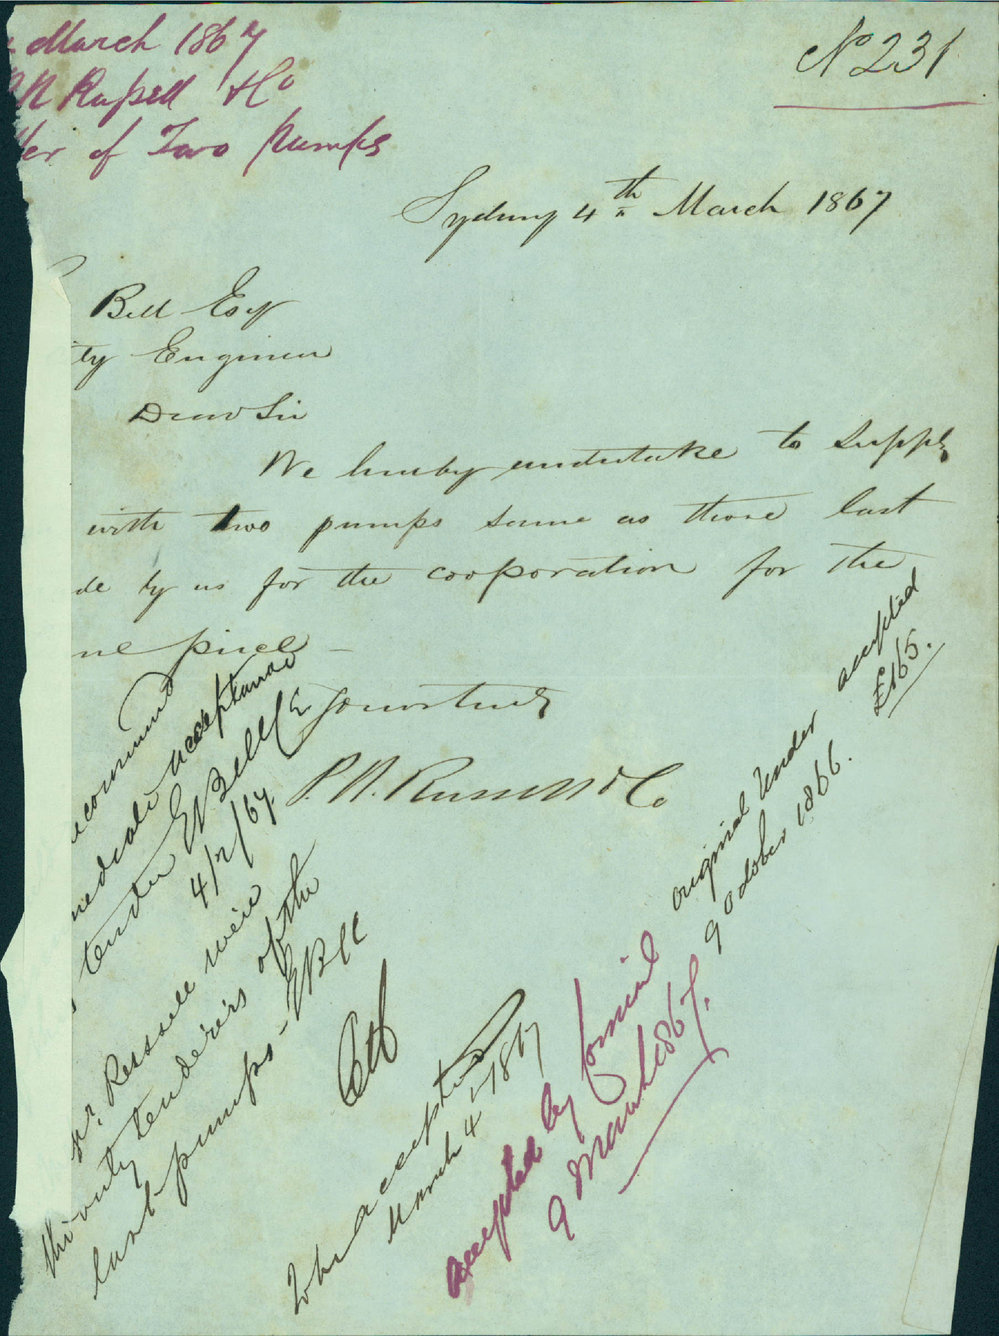 March 1867
N Russell & Co
er of Two Pumps
No 231
Sydney 4th March 1867
Bell Esqr
ty Engineer
Dear Sir
We hereby undertake to supply
with two pumps same as those last
de by us for the cooporation for the
me price
Yours truly
P. N. Russell & Co
recommend
mediate acceptance
tender EBell CE
4/3/67
Mr. Russell were
the only tenderers of the
last pumps - EBell
accepted
March 4 1867
accepted by Council
9 March 1867.
original Under accepted
9 October 1866. £165.